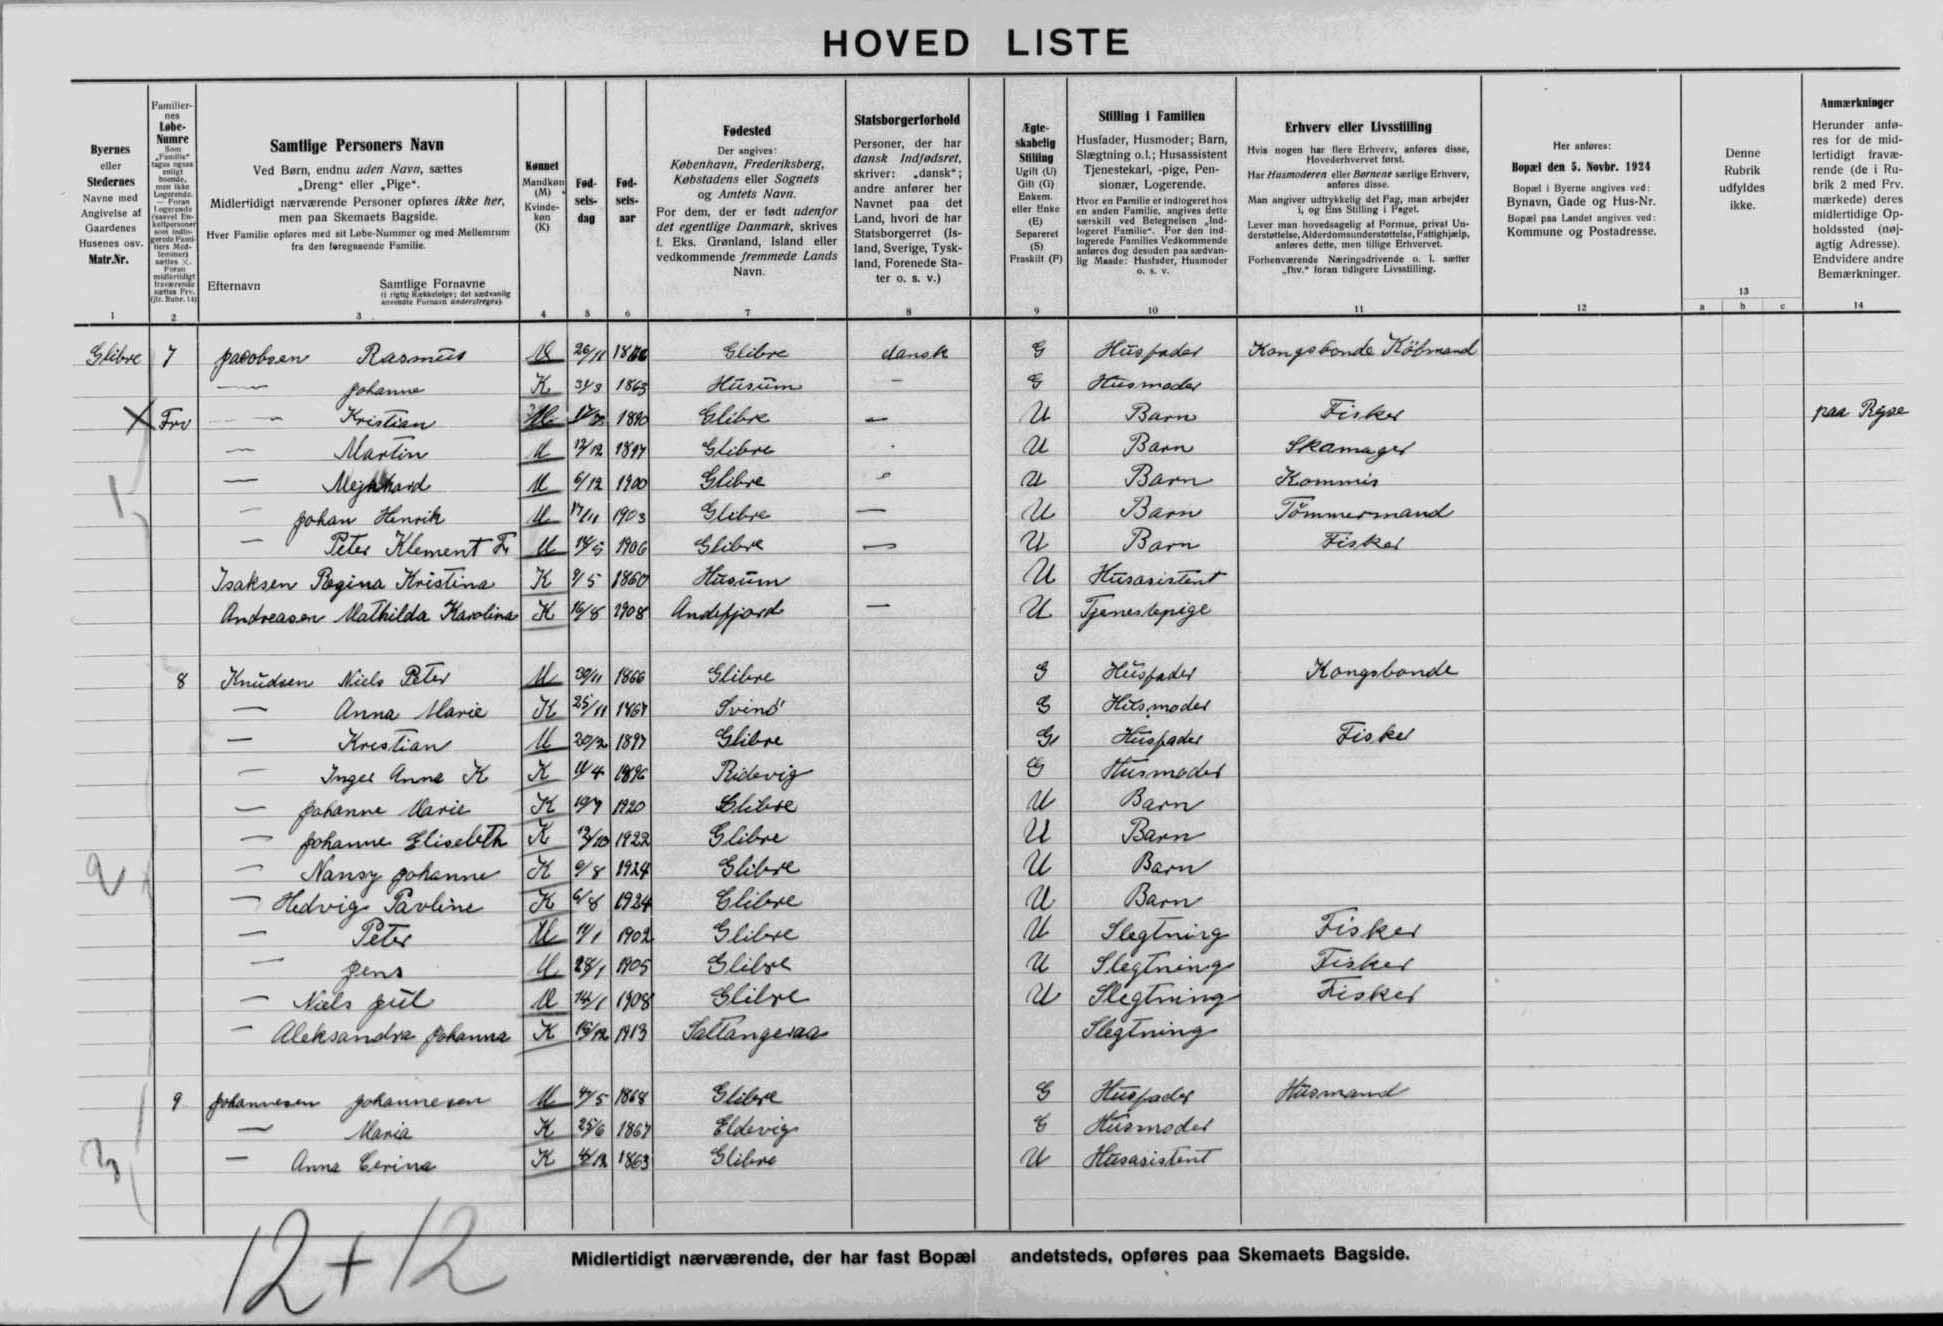 HOVED LISTE
Byernes eller Stedernes Navne med Angivelse af Gaardenes Husenes osv. Matr.Nr.
Familiernes Løbe-Numre
Samtlige Personers Navn
Ved Børn, endnu uden Navn, sættes
„Dreng“ eller „Pige“.
Midlertidigt nærværende Personer opføres ikke her,
men paa Skemaets Bagside.
Hver Familie opføres med sit Løbe-Nummer og med Mellemrum
fra den foregaaende Familie.
Efternavn Samtlige Fornavne
(i rigtig Rækkefølge; det sædvanlig
anvendte Fornavn understreges).
Kønnet Mandkøn (M) Kvindekøn (K)
Fødselsdag
Fødselsaar
Fødested
Der angives:
København, Frederiksberg,
Købstadens eller Sognets
og Amtets Navn.
For dem, der er født udenfor
det egentlige Danmark, skrives
f. Eks. Grønland, Island eller
vedkommende fremmede Lands
Navn.
Statsborgerforhold
Personer, der har
dansk Indfødsret,
skriver: „dansk“;
andre anfører her
Navnet paa det
Land, hvori de har
Statsborgerret (Is-
land, Sverige, Tysk-
land, Forenede Sta-
ter o. s. v.)
Ægte-
skabelig
Stilling
Ugift (U)
Gift (G)
Enkem.
eller Enke
(E)
Separeret
(S)
Fraskilt (F)
Stilling i Familien
Husfader, Husmoder; Barn,
Slægtning o.l.; Husassistent
Tjenestekarl, -pige, Pen-
sionær, Logerende.
Hvor en Familie er indlogeret hos
en anden Familie, angives dette
særskilt ved Betegnelsen „Ind-
logeret Familie“. For den ind-
logerede Families Vedkommende
anføres dog desuden paa sædvan-
lig Maade: Husfader, Husmoder
o. s. v.
Erhverv eller Livsstilling
Hvis nogen har flere Erhverv, anføres disse,
Hovederhvervet først.
Har Husmoderen eller Børnene særlige Erhverv,
anføres disse.
Man angiver udtrykkelig det Fag, man arbejder
i, og Ens Stilling i Faget.
Lever man hovedsagelig af Formue, privat Un-
derstøttelse, Alderdomsunderstøttelse, Fattighjælp,
anføres dette, men tillige Erhvervet.
Forhenværende Næringsdrivende o. l. sætter
„fhv.“ foran tidligere Livsstilling.
Her anføres:
Bopæl den 5. Novbr. 1924
Bopæl i Byerne angives ved:
Bynavn, Gade og Hus-Nr.
Bopæl paa Landet angives ved:
Kommune og Postadresse.
Denne
Rubrik
udfyldes
ikke.
Anmærkninger
Herunder anfø-
res for de mid-
lertidigt fravæ-
rende (de i Ru-
brik 2 med Frv.
mærkede) deres
midlertidige Op-
holdssted (nøj-
agtig Adresse).
Endvidere andre
Bemærkninger.
1 2 3 4 5 6 7 8 9 10 11 12 13 a b c 14
Glibre 7 Jacobsen Rasmus M 26/11 Glibre dansk G Husfader Kongsbonde Købmand
— Johanne K 1865 Husum — G Husmoder
X Frv — Kristian M 1890 Glibre — U Barn Fisker paa Rejse
— Martin M 12/12 1897 Glibre U Barn Skomager
— Mejnhard M 6/12 1900 Glibre U Barn Kommis
— Johan Henrik M 17/11 1903 Glibre — U Barn Tømmermand
— Peter Klement Fr M 1906 Glibre — U Barn Fisker
Isaksen Regina Kristina K 9/5 1860 Husum U Husasistent
Andreasen Mathilda Karolina K 16/8 1908 Andefjord — U Tjenestepige
8 Knudsen Niels Peter M 30/11 1866 Glibre G Husfader Kongsbonde
— Anna Marie K 25/11 1867 Svinö G Husmoder
— Kristian M 20/2 1897 Glibre G Husfader Fisker
— Inger Anna K K 11/4 1896 Ridevig G Husmoder
— Johanne Marie K 1920 Glibre U Barn
— Johanne Elisebeth K 1922 Glibre U Barn
— Nansy Johanne K 1924 Glibre U Barn
— Hedvig Pavline K 6/8 1924 Glibre U Barn
— Peter M 11/1 1902 Glibre U Slegtning Fisker
— Jens M 28/1 1905 Glibre U Slegtning Fisker
— Niels Jul M 14/1 1908 Glibre U Slegtning Fisker
— Aleksandra Johanna K 15/12 1913 Saltangeraa Slegtning
9 Johannesen Johannesen M 1868 Glibre G Husfader Husmand
— Maria K 25/6 1867 Eldevig G Husmoder
— Anna Cerina K 1863 Glibre U Husasistent
12 + 12
Midlertidigt nærværende, der har fast Bopæl andetsteds, opføres paa Skemaets Bagside.